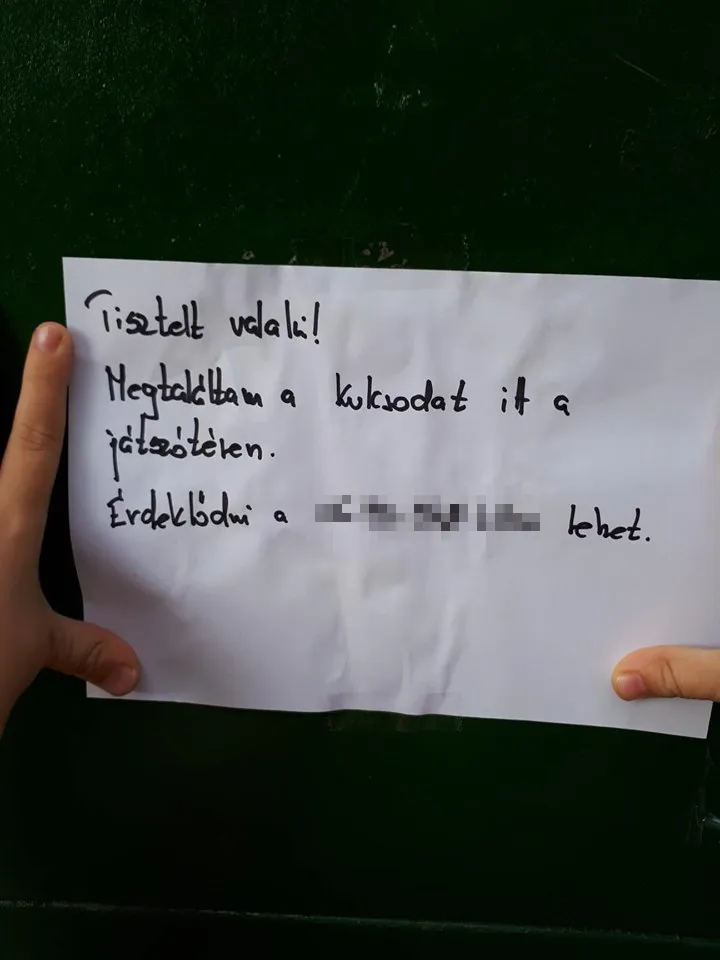 Tisztelt valaki!
Megtaláltam a kulcsodat itt a
játszótéren.
Érdeklődni a lehet.